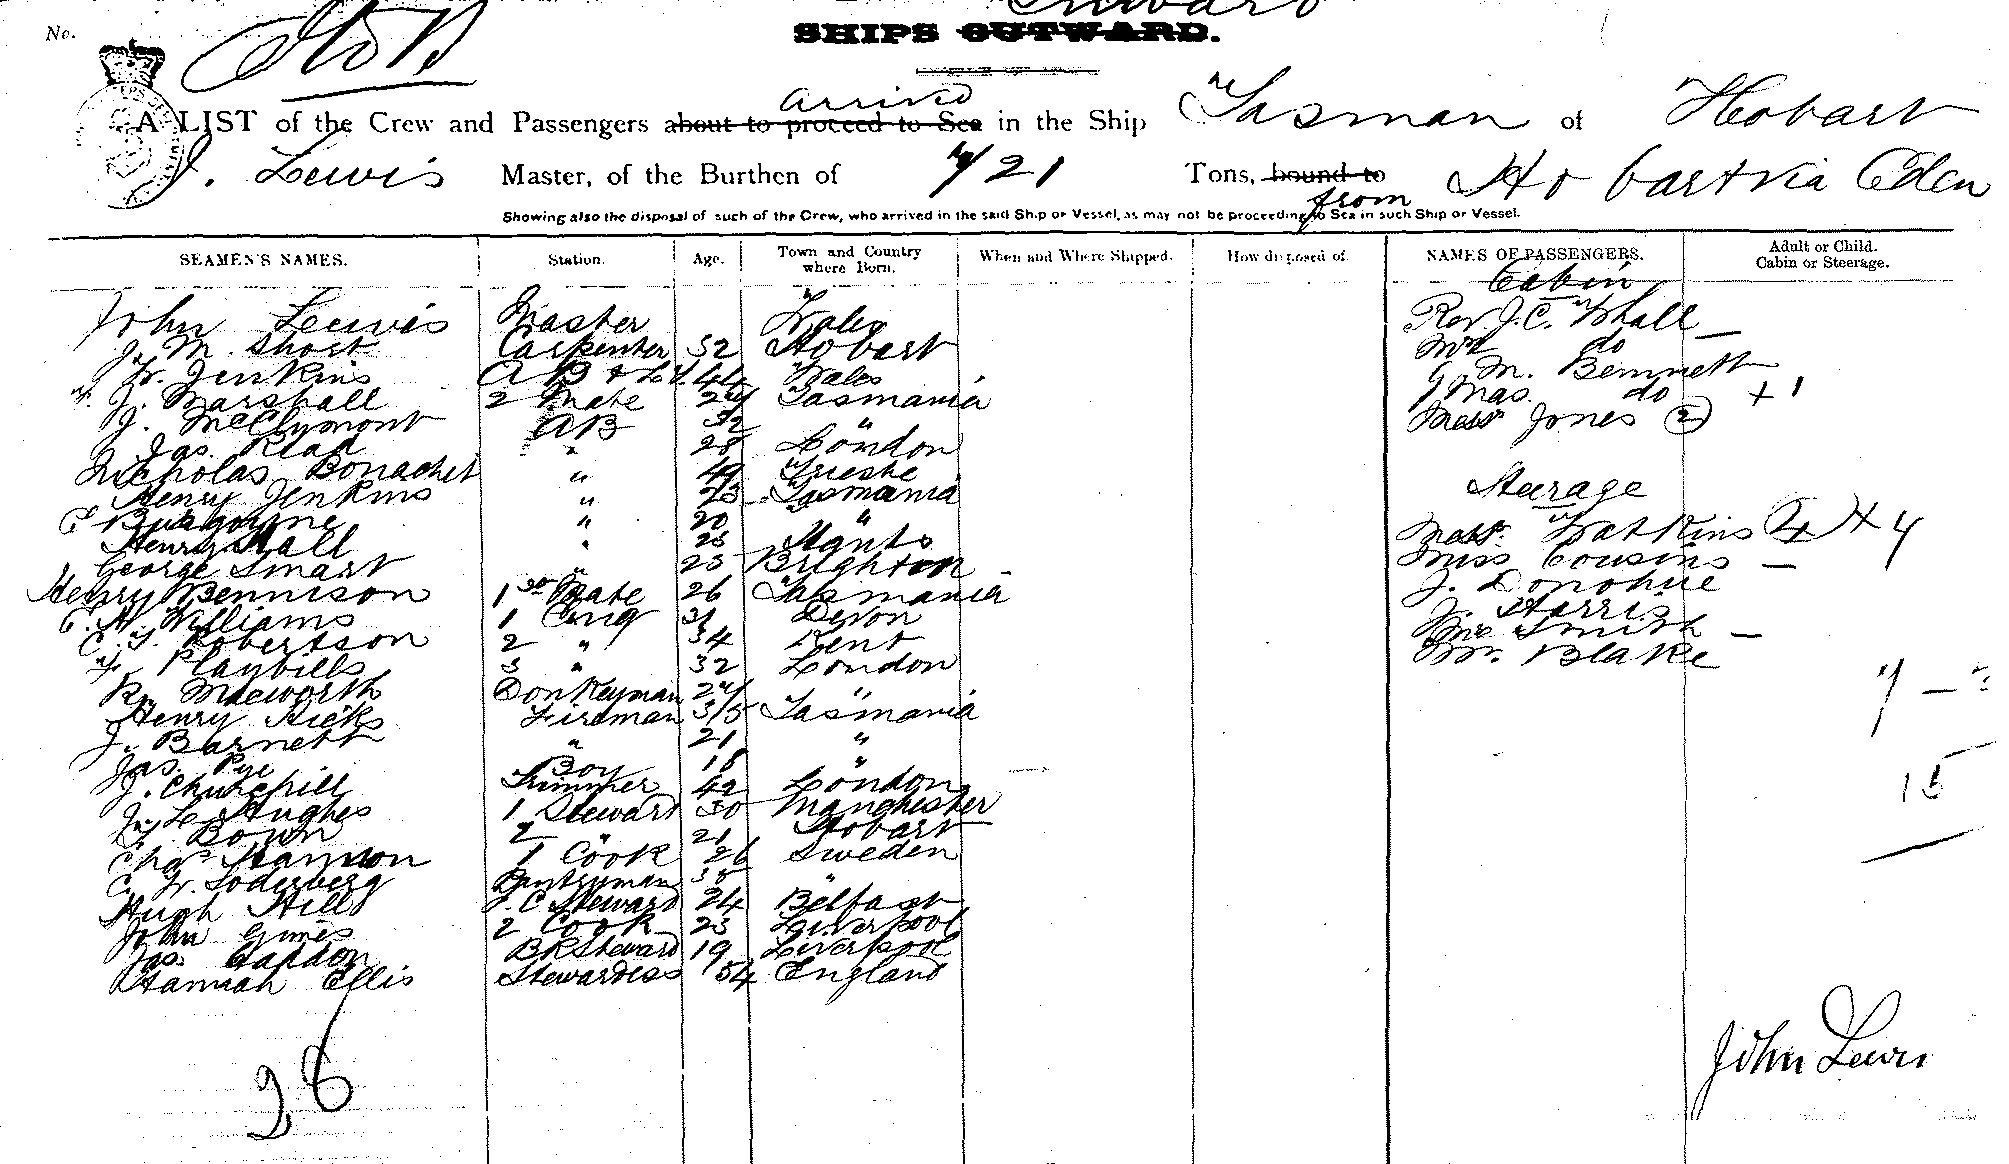 No.
Inward
SHIPS OUTWARD.
arrived
A LIST of the Crew and Passengers about to proceed to Sea in the Ship Tasman of Hobart
J. Lewis Master, of the Burthen of Tons, bound to from Hobart via Eden
Showing also the disposal of such of the Crew, who arrived in the said Ship or Vessel, as may not be proceeding to Sea in such Ship or Vessel.
SEAMEN'S NAMES. Station. Age. Town and Country where Born. When and Where Shipped. How disposed of. NAMES OF PASSENGERS. Adult or Child. Cabin or Steerage.
John Lewis Master Wales
M. Short Carpenter 32 Hobart
Jenkins A B & L 44 Wales
J. Marshall 2 Mate 24 Tasmania
J. McClymont AB 32 "
Jas. Read " 28 London
Nicholas Bonachet " 49 Trieste
Henry Jenkins " 23 Tasmania
Burgoyne " 20 "
Henry Hall " 25 Hants
George Smart " 25 Brighton
Henry Bennison 1st Mate 26 Tasmania
Williams 1 Eng 31 Devon
C. T. Robertson 2 " 34 Kent
Playbills 3 " 32 London
Donkeyman 24 "
Henry Hicks Fireman 35 Tasmania
J. Barnett " 21 "
Jas. Pye Boy 18 "
J. Churchill Trimmer 42 London
J. L. Hughes 1 Steward 30 Manchester
Bown 2 " 21 Hobart
Chas Hannson 1 Cook 26 Sweden
C. W. Soderberg Pantryman 35 "
Hugh Hill F.C Steward 24 Belfast
John Gimes 2 Cook 23 Liverpool
Jas. BR Steward 19 Liverpool
Hannah Ellis Stewardess 54 England
28
Cabin
Rev J.C. Whall
Mrs do
M. Bennett
Mas. do + 1
Mess Jones 2
Steerage
Mess. Watkins 4 + 4
Miss Cousins
J. Donohue
J. Harris
Smith
Mr. Blake
15
John Lewis